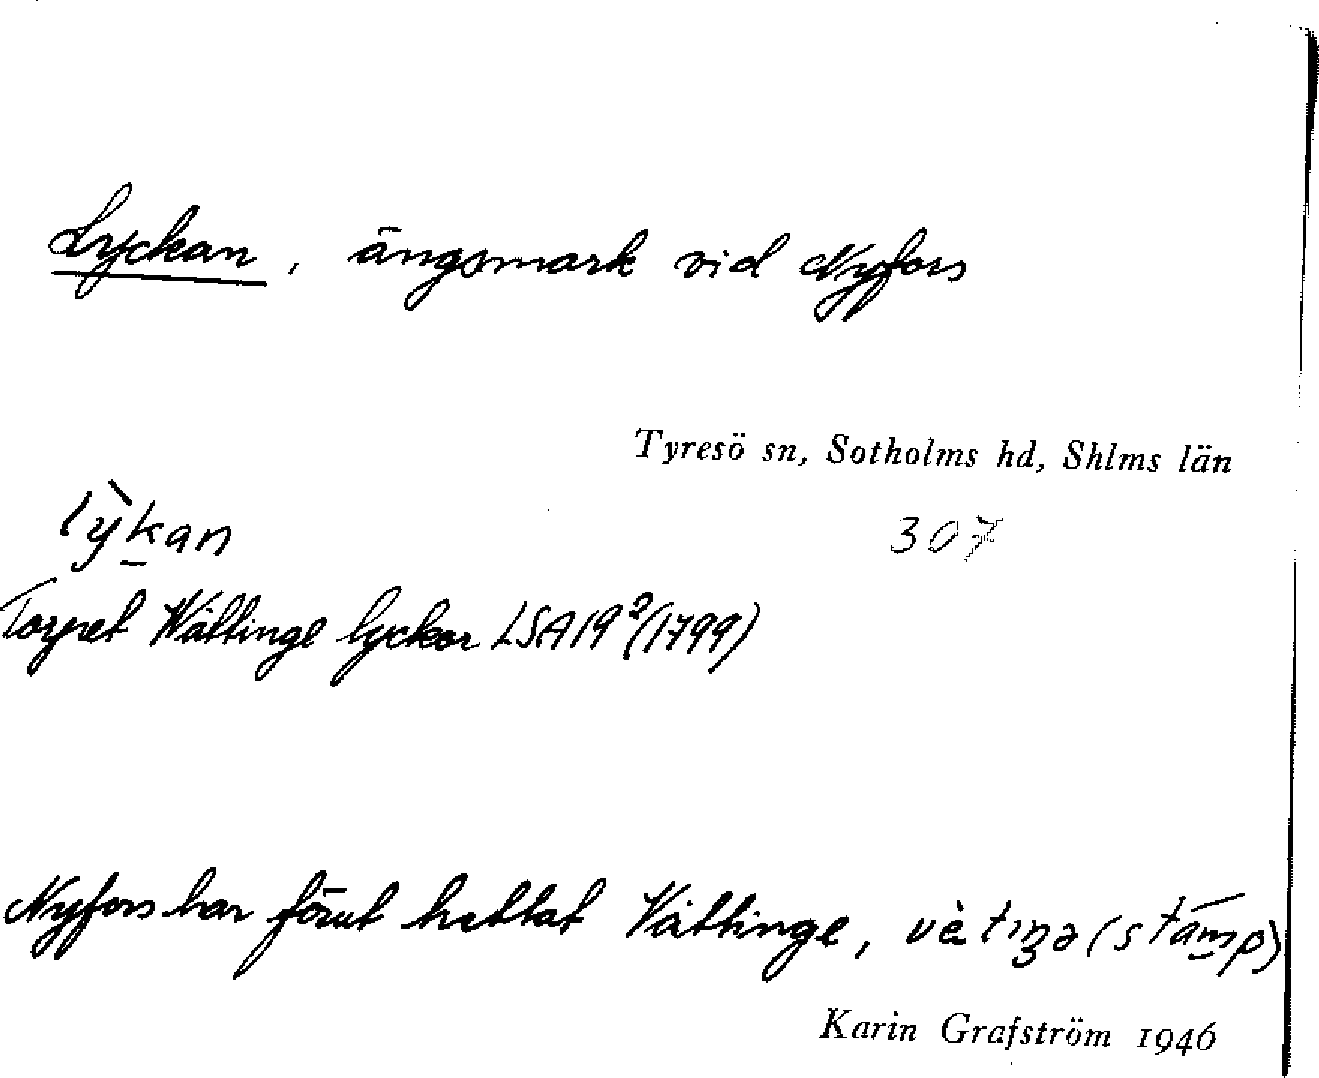 Lyckan, ängsmark vid Nyfors
Tyresö sn, Sotholms hd, Shlms län
lỳkan
307
Torpet Wättinge lyckor LSA 19²(1799)
Nyfors har förut hettat Vättinge, vètıŋə (stamp)
Karin Grafström 1946